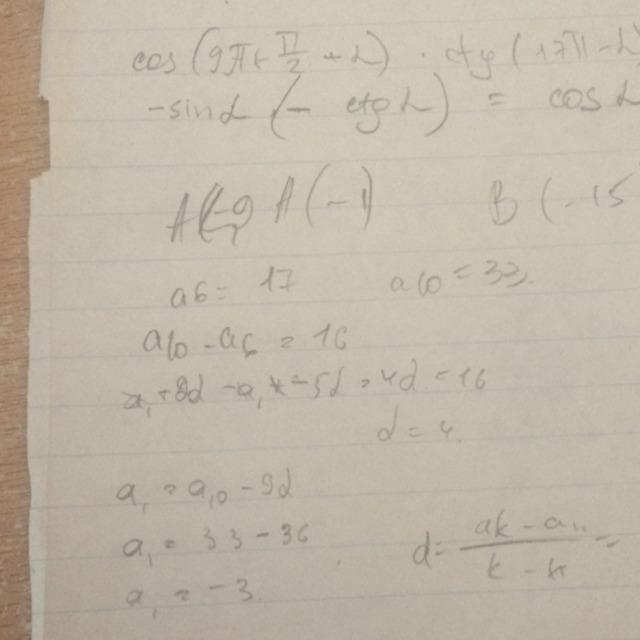 cos (9π + π/2 - α) · ctg (12π - α)
-sin α (- ctg α) = cos α
A (-1) B (-15
a6 = 17 a10 = 33
a10 - a6 = 16
a1 + 9d - a1 - 5d = 4d = 16
d = 4
a1 = a10 - 9d
a1 = 33 - 36
a1 = -3 d = (ak - an)/(k - n) =